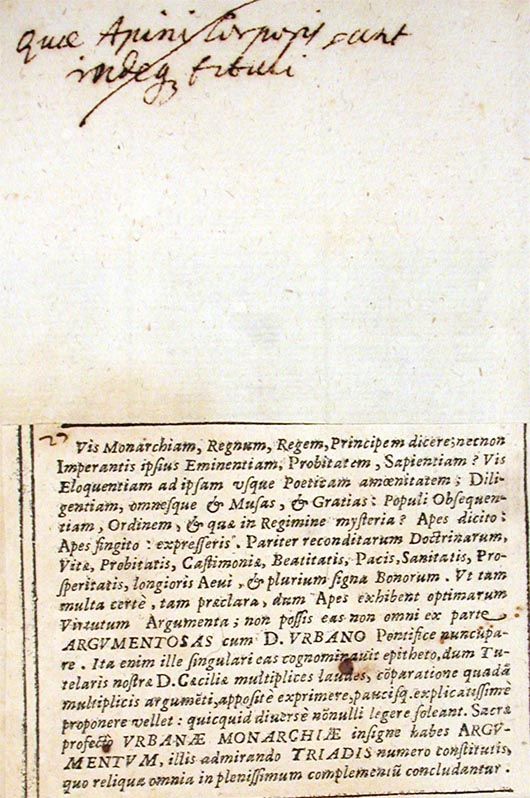 Quæ Apini Corporis sunt
indeq tituli
27
Vis Monarchiam, Regnum, Regem, Principem dicere; necnon
Imperantis ipsius Eminentiam, Probitatem, Sapientiam? Vis
Eloquentiam ad ipsam vsque Poeticam amœnitatem; Dili-
gentiam, omnesque & Musas, & Gratias: Populi Obsequen-
tiam, Ordinem, & quæ in Regimine mysteria? Apes dicito:
Apes fingito: expresseris. Pariter reconditarum Doctrinarum,
Vitæ, Probitatis, Castimoniæ, Beatitatis, Pacis, Sanitatis, Pro-
speritatis, longioris Aeui, & plurium signa Bonorum. Vt tam
multa certè, tam præclara, dum Apes exhibent optimarum
Virtutum Argumenta; non possis eas non omni ex parte
ARGVMENTOSAS cum D. VRBANO Pontifice nuncupa-
re. Ita enim ille singulari eas cognominauit epitheto, dum Tu-
telaris nostræ D. Cæciliæ multiplices laudes, cōparatione quadā
multiplicis argumēti, appositè exprimere, paucisq. explicatissimè
proponere vellet: quicquid diuersè nōnulli legere soleant. Sacræ
profectò VRBANÆ MONARCHIÆ insigne habes ARGV-
MENTVM, illis admirando TRIADIS numero constitutis,
quo reliqua omnia in plenissimum complementū concludantur.